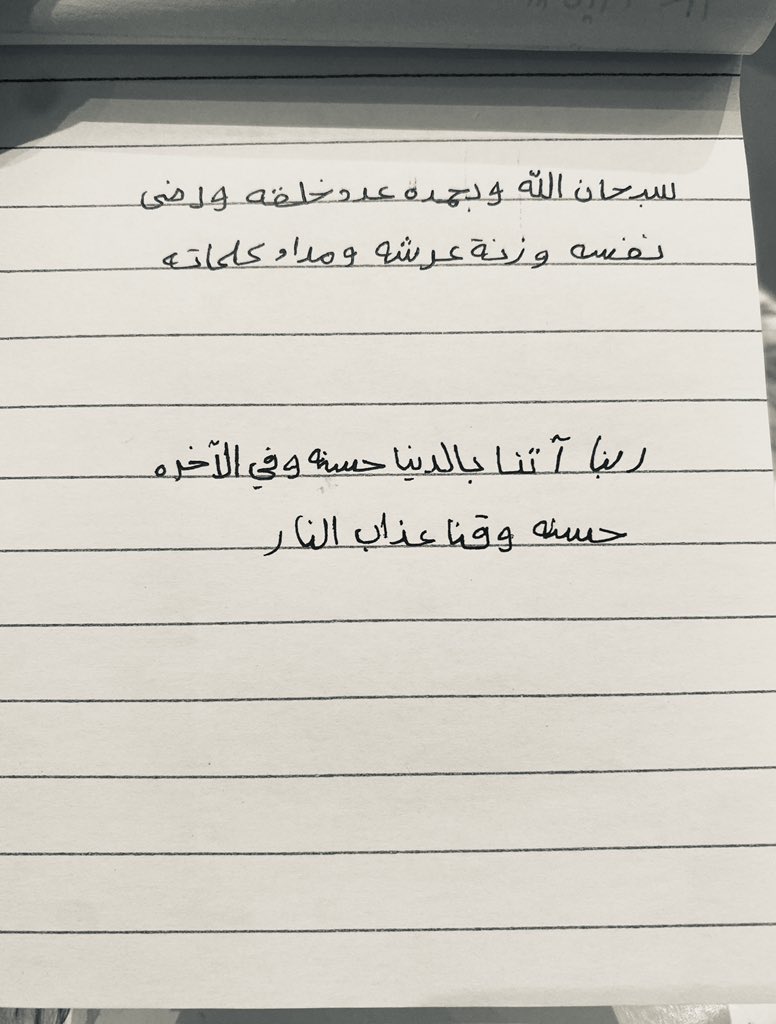 سبحان الله وبحمده عدد خلقه ورضى
نفسه وزنة عرشه ومداد كلماته
ربنا آتنا بالدنيا حسنه وفي الآخره
حسنه وقنا عذاب النار